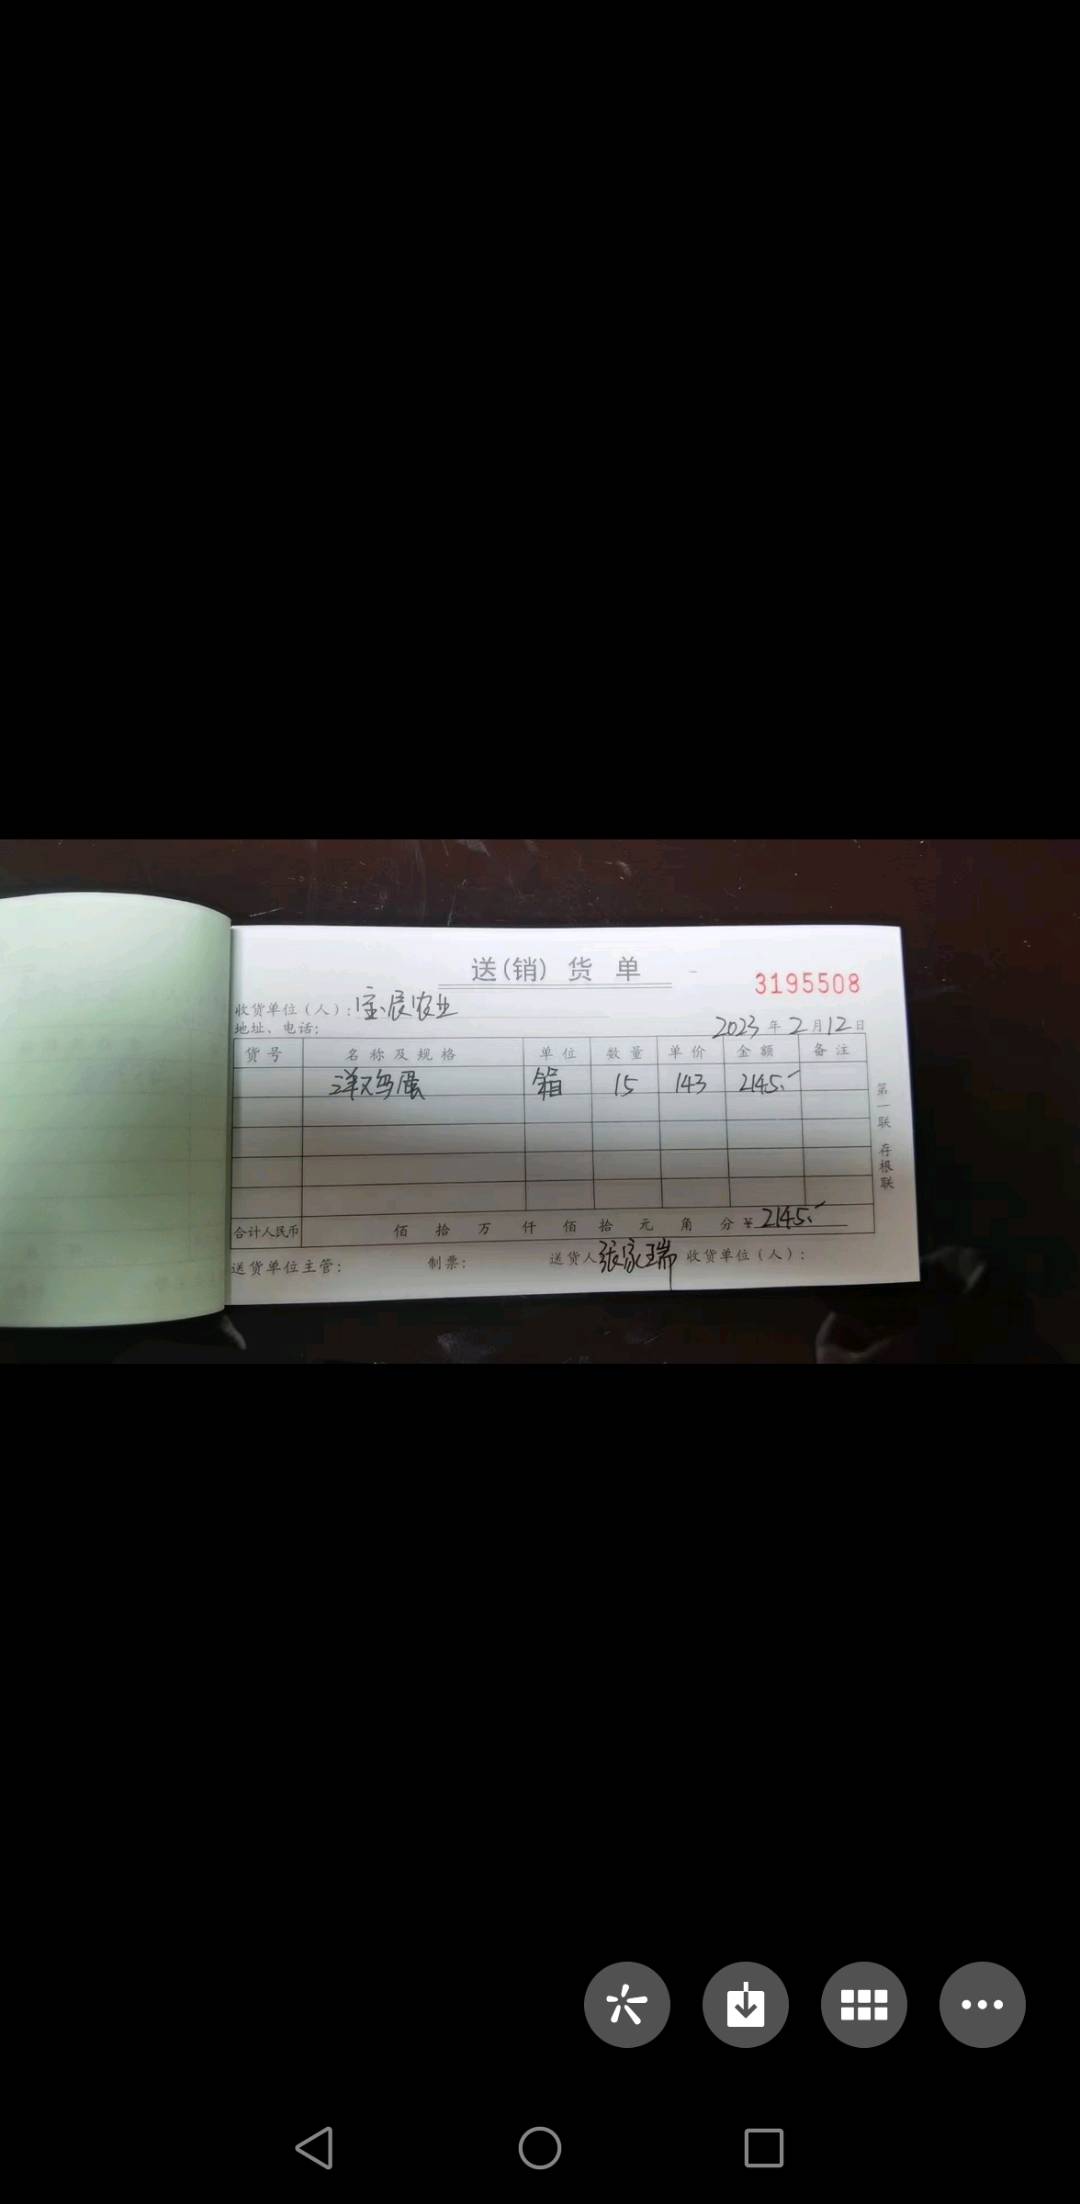 送(销) 货 单
3195508
收货单位（人）：宝辰农业
地址、电话：
2023年2月12日
货号 名称及规格 单位 数量 单价 金额 备注
洋鸡蛋 箱 15 143 2145.-
合计人民币 佰 拾 万 仟 佰 拾 元 角 分 ¥2145.-
送货单位主管： 制票： 送货人 张家瑞 收货单位（人）：
第一联 存根联